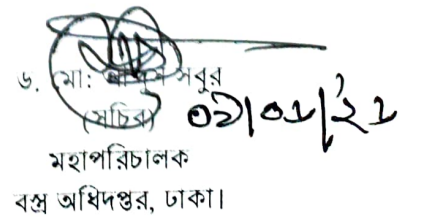 ৬. মো: আবদুস সবুর
(সচিব) ০৯|০১|'২১
মহাপরিচালক
বস্ত্র অধিদপ্তর, ঢাকা।